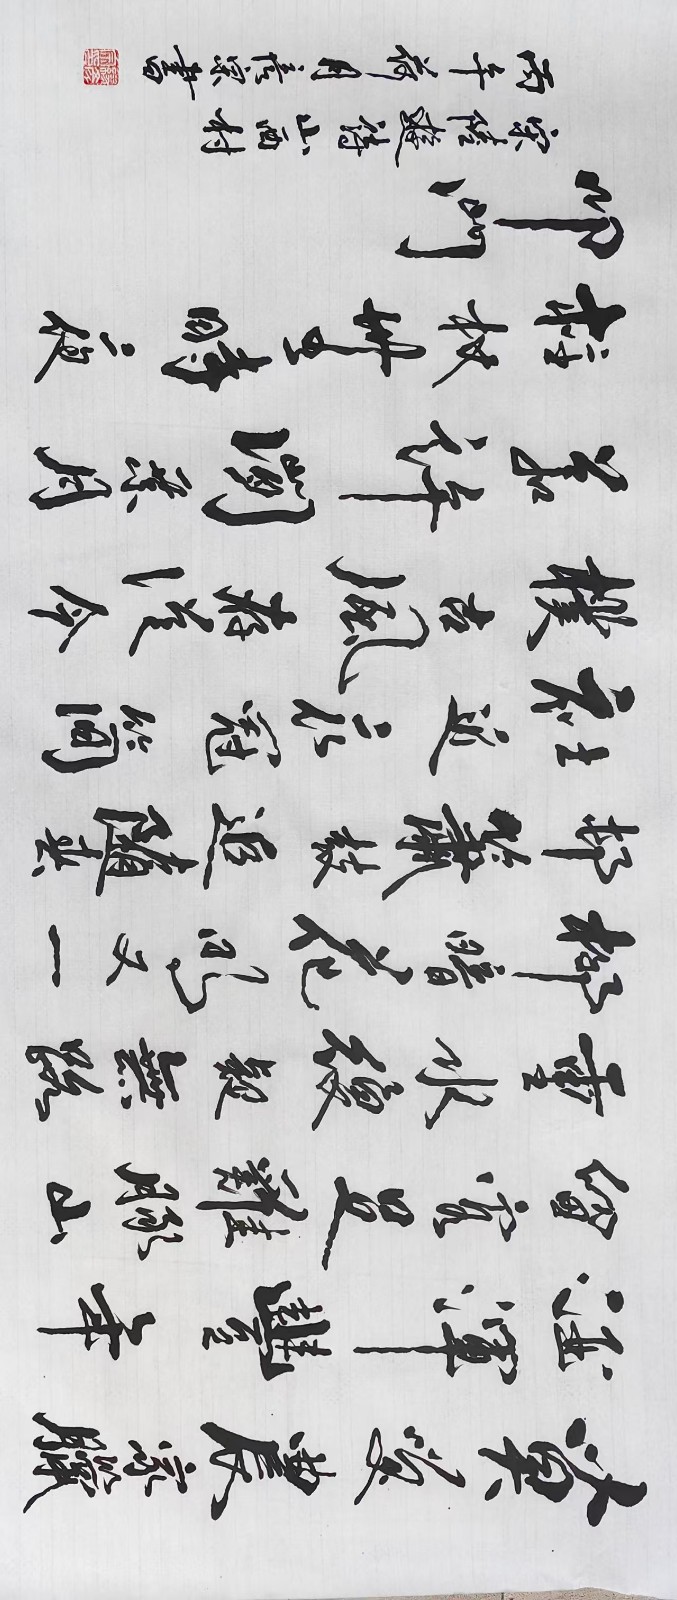 莫笑農家臘
酒渾豐年
留客足雞豚山
重水複疑無路
柳暗花明又一
村簫鼓追隨春
社近衣冠簡
樸古風存從今
若許閒乘月
拄杖無時夜
叩門
宋陸遊詩山西村
丙午荷月書